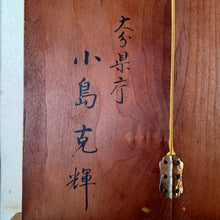 大分県庁
小島克輝